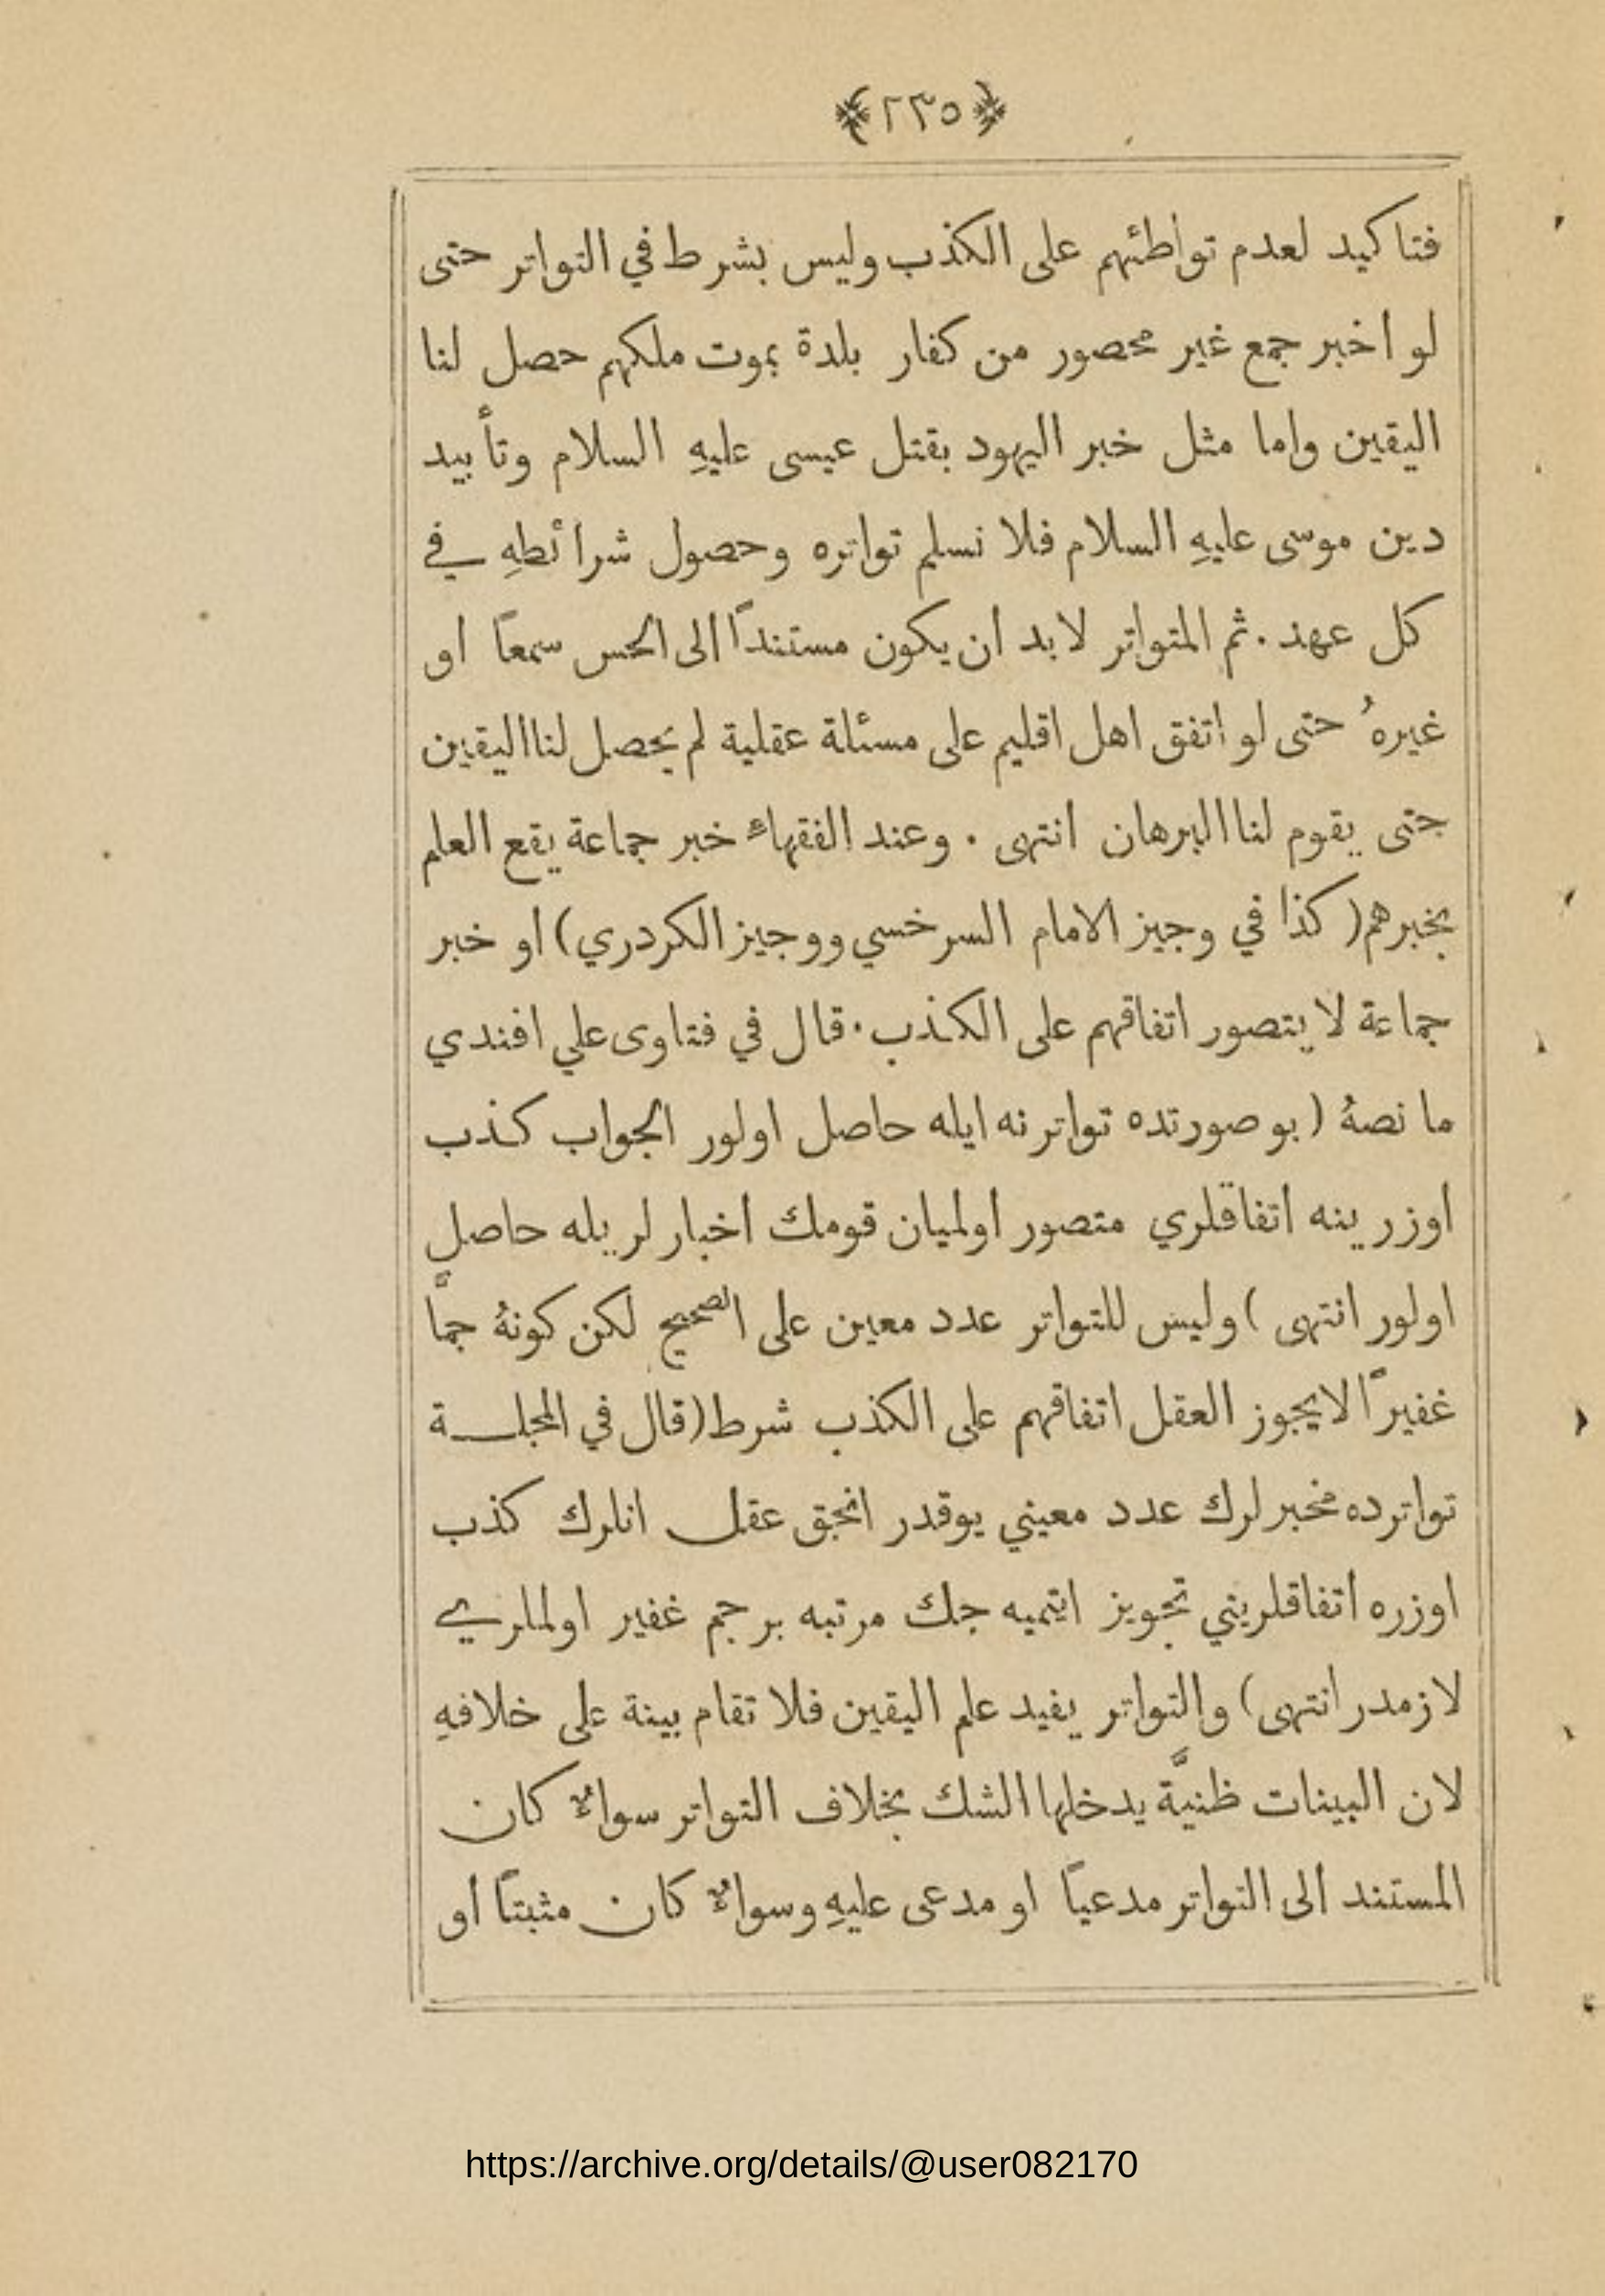 ﴿٢٣٥﴾
فتاكيد لعدم تواطئهم على الكذب وليس بشرط في التواتر حتى
لو اخبر جمع غير محصور من كفار بلدة بموت ملكهم حصل لنا
اليقين واما مثل خبر اليهود بقتل عيسى عليهِ السلام وتأبيد
دين موسى عليهِ السلام فلا نسلم تواتره وحصول شرائطهِ في
كل عهد . ثم المتواتر لا بد ان يكون مستنداً الى الحس سمعاً او
غيرهُ حتى لو اتفق اهل اقليم على مسئلة عقلية لم يحصل لنا اليقين
حتى يقوم لنا البرهان انتهى . وعند الفقهاء خبر جماعة يقع العلم
بخبرهم ( كذا في وجيز الامام السرخسي ووجيز الكردري ) او خبر
جماعة لا يتصور اتفاقهم على الكذب . قال في فتاوى علي افندي
ما نصهُ ( بو صورتده تواتر نه ايله حاصل اولور الجواب كذب
اوزرينه اتفاقلري متصور اولميان قومك اخبار لريله حاصل
اولور انتهى ) وليس للتواتر عدد معين على الصحيح لكن كونهُ جمًّا
غفيراً لا يجوز العقل اتفاقهم على الكذب شرط ( قال في المجلـــة
تواترده مخبر لرك عدد معيني يوقدر انجق عقل انلرك كذب
اوزره اتفاقلريني تجويز ايتميه جك مرتبه بر جم غفير اولملري
لازمدر انتهى ) والتواتر يفيد علم اليقين فلا تقام بينة على خلافهِ
لان البينات ظنيَّة يدخلها الشك بخلاف التواتر سواءٌ كان
المستند الى التواتر مدعياً او مدعى عليهِ وسواءٌ كان مثبتاً او
https://archive.org/details/@user082170